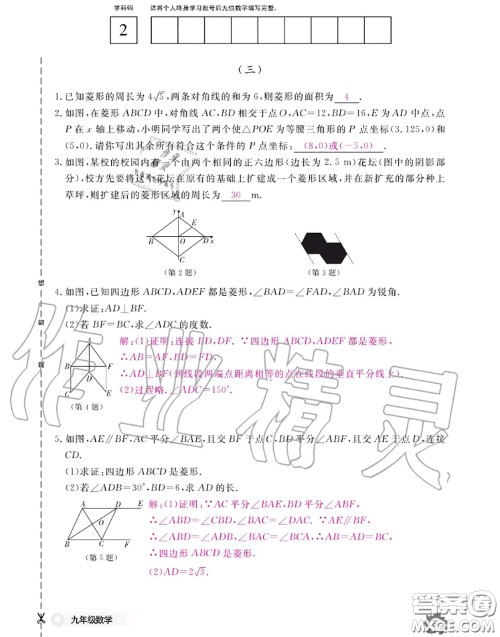 学科码
请将个人终身学习账号后九位数字填写完整。
2
(三)
1.已知菱形的周长为4√5,两条对角线的和为6,则菱形的面积为 4 .
2.如图,在菱形ABCD中,对角线AC,BD相交于点O,AC=12,BD=16,E为AD中点,点
P在x轴上移动,小明同学写出了两个使△POE为等腰三角形的P点坐标(3.125,0)和
(5,0).请你写出其余所有符合这个条件的P点坐标: (8,0)或(-5,0) .
3.如图,某校的校园内有一个由两个相同的正六边形(边长为2.5 m)花坛(图中的阴影部
分),校方先要将这个花坛在原有的基础上扩建成一个菱形区域,并在新扩充的部分种上
草坪,则扩建后的菱形区域的周长为 30 m.
(第2题)
(第3题)
4.如图,已知四边形ABCD,ADEF都是菱形,∠BAD=∠FAD,∠BAD为锐角.
(1)求证:AD⊥BF.
(2)若BF=BC,求∠ADC的度数.
解:(1)证明:连接BD,DF.∵四边形ABCD,ADEF都是菱形,
∴AB=AF,BD=FD.
∴AD⊥BF(到线段两端点距离相等的点在线段的垂直平分线上).
(2)过程略.∠ADC=150°.
(第4题)
5.如图,AE∥BF,AC平分∠BAE,且交BF于点C,BD平分∠ABF,且交AE于点D,连接
CD.
(1)求证:四边形ABCD是菱形.
(2)若∠ADB=30°,BD=6,求AD的长.
解:(1)证明:∵AC平分∠BAE,BD平分∠ABF,
∴∠ABD=∠CBD,∠BAC=∠DAC.∵AE∥BF,
∴∠ABD=∠ADB,∠BAC=∠BCA.∴AB=AD=BC.
∴四边形ABCD是菱形.
(2)AD=2√3.
(第5题)
九年级数学
作业精灵